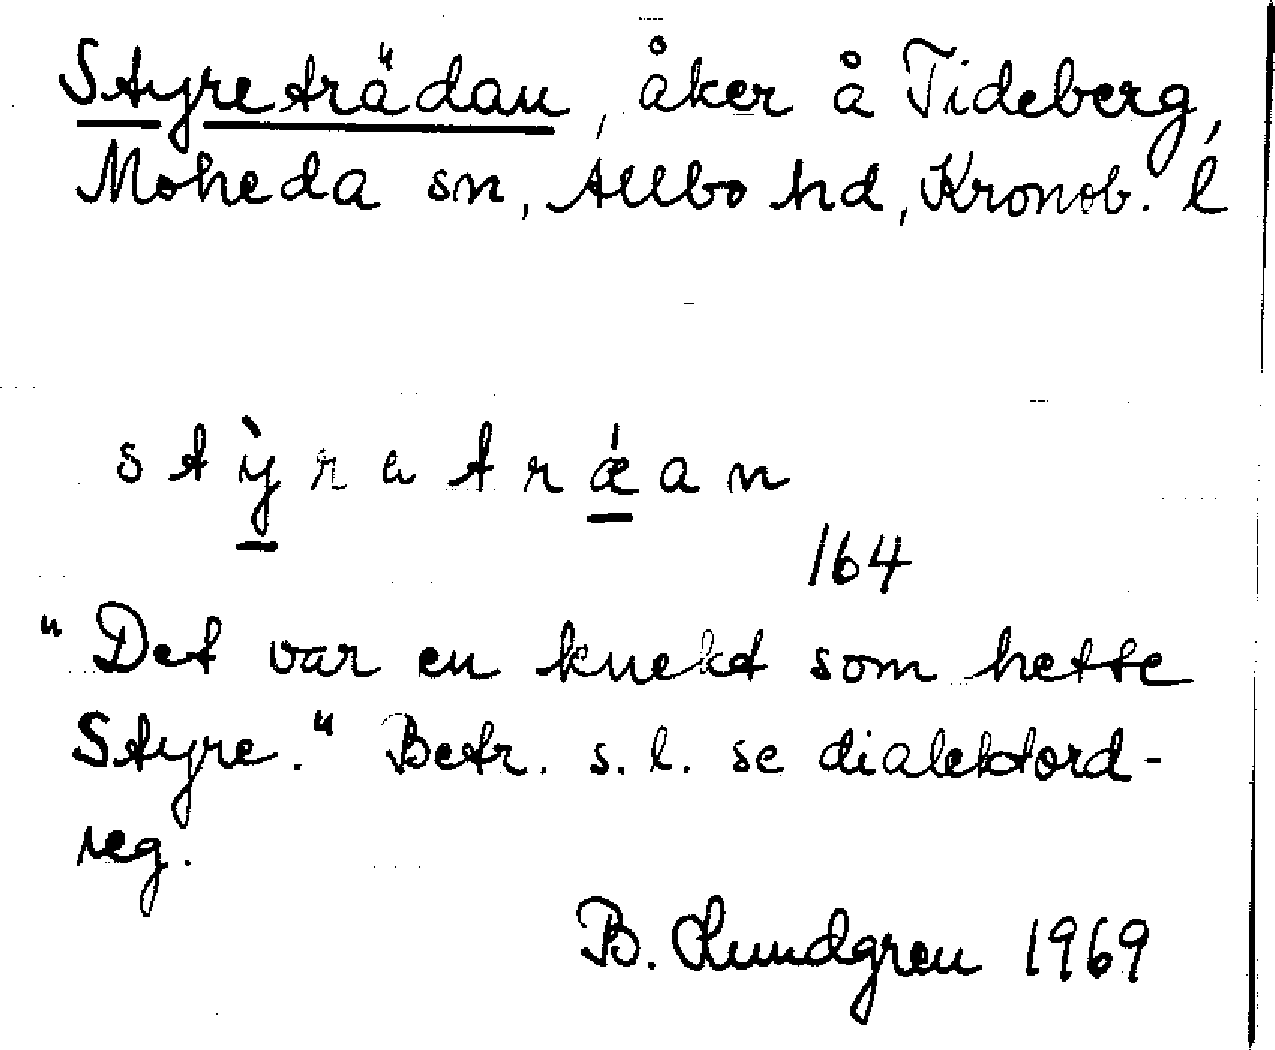 Styreträdan, åker å Tideberg,
Moheda sn, Allbo hd, Kronob. l
s t ỳ r a t r ǽ a n
164
"Det var en knekt som hette
Styre." Betr. s. l. se dialektord-
reg.
B. Lundgren 1969